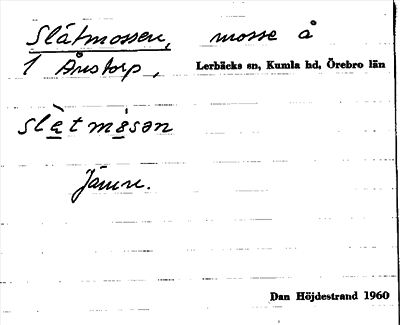 Slåtmossen, mosse å
1 Ånstorp, Lerbäcks sn, Kumla hd, Örebro län
slàtmósən
Jämn.
Dan Höjdestrand 1960